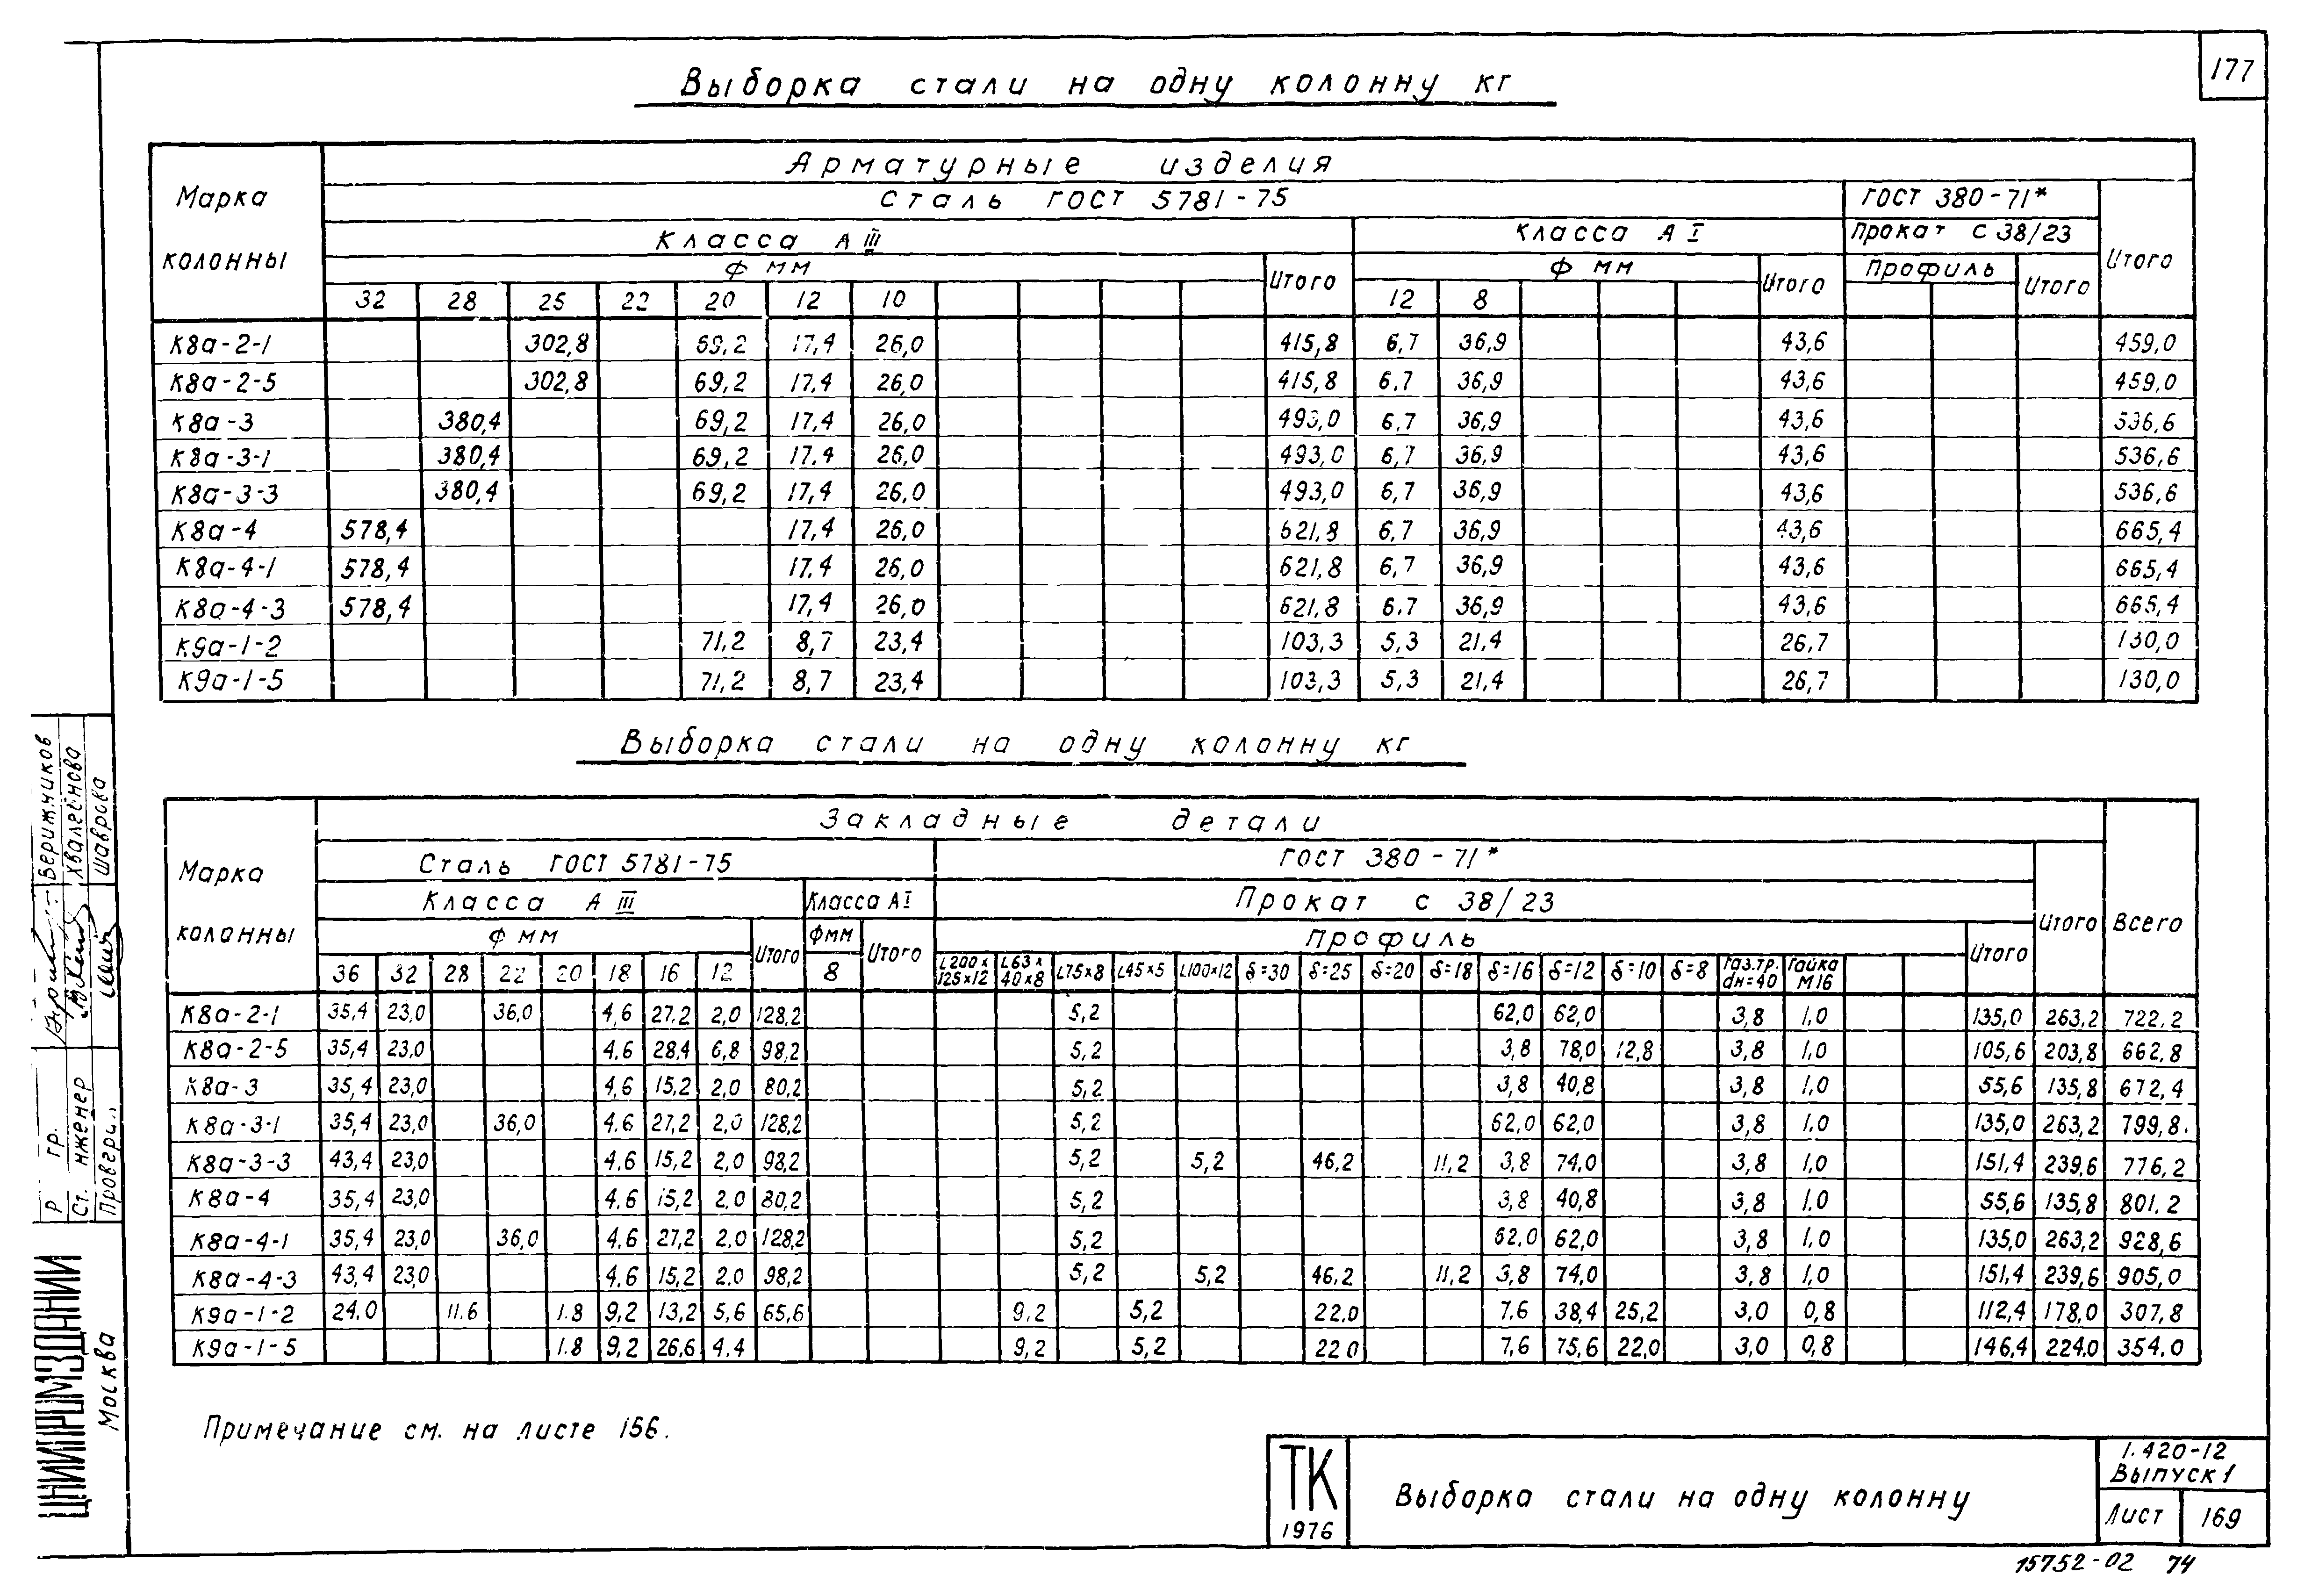 177
Выборка стали на одну колонну кг
Марка колонны
Арматурные изделия
Сталь ГОСТ 5781-75 ГОСТ 380-71* Итого
Класса А III Класса А I Прокат С 38/23
Ф мм Итого Ф мм Итого Профиль Итого
32 28 25 22 20 12 10 12 8
К8а-2-1 302,8 69,2 17,4 26,0 415,8 6,7 36,9 43,6 459,0
К8а-2-5 302,8 69,2 17,4 26,0 415,8 6,7 36,9 43,6 459,0
К8а-3 380,4 69,2 17,4 26,0 493,0 6,7 36,9 43,6 536,6
К8а-3-1 380,4 69,2 17,4 26,0 493,0 6,7 36,9 43,6 536,6
К8а-3-3 380,4 69,2 17,4 26,0 493,0 6,7 36,9 43,6 536,6
К8а-4 578,4 17,4 26,0 621,8 6,7 36,9 43,6 665,4
К8а-4-1 578,4 17,4 26,0 621,8 6,7 36,9 43,6 665,4
К8а-4-3 578,4 17,4 26,0 621,8 6,7 36,9 43,6 665,4
К9а-1-2 71,2 8,7 23,4 103,3 5,3 21,4 26,7 130,0
К9а-1-5 71,2 8,7 23,4 103,3 5,3 21,4 26,7 130,0
Выборка стали на одну колонну кг
Марка колонны
Закладные детали Всего
Сталь ГОСТ 5781-75 ГОСТ 380-71* Итого
Класса А III Класса А I Прокат С 38/23
Ф мм Итого Фмм Итого Профиль Итого
36 32 28 22 20 18 16 12 8 L200х125х12 L63х40х8 L75х8 L45х5 L100х12 δ=30 δ=25 δ=20 δ=18 δ=16 δ=12 δ=10 δ=8 Газ.тр. dн=40 Гайка М16
К8а-2-1 35,4 23,0 36,0 4,6 27,2 2,0 128,2 5,2 62,0 62,0 3,8 1,0 135,0 263,2 722,2
К8а-2-5 35,4 23,0 4,6 28,4 6,8 98,2 5,2 3,8 78,0 12,8 3,8 1,0 105,6 203,8 662,8
К8а-3 35,4 23,0 4,6 15,2 2,0 80,2 5,2 3,8 40,8 3,8 1,0 55,6 135,8 672,4
К8а-3-1 35,4 23,0 36,0 4,6 27,2 2,0 128,2 5,2 62,0 62,0 3,8 1,0 135,0 263,2 799,8
К8а-3-3 43,4 23,0 4,6 15,2 2,0 98,2 5,2 5,2 46,2 11,2 3,8 74,0 3,8 1,0 151,4 239,6 776,2
К8а-4 35,4 23,0 4,6 15,2 2,0 80,2 5,2 3,8 40,8 3,8 1,0 55,6 135,8 801,2
К8а-4-1 35,4 23,0 36,0 4,6 27,2 2,0 128,2 5,2 62,0 62,0 3,8 1,0 135,0 263,2 928,6
К8а-4-3 43,4 23,0 4,6 15,2 2,0 98,2 5,2 5,2 46,2 11,2 3,8 74,0 3,8 1,0 151,4 239,6 905,0
К9а-1-2 24,0 11,6 1,8 9,2 13,2 5,6 65,6 9,2 5,2 22,0 7,6 38,4 25,2 3,0 0,8 112,4 178,0 307,8
К9а-1-5 1,8 9,2 26,6 4,4 9,2 5,2 22,0 7,6 75,6 22,0 3,0 0,8 146,4 224,0 354,0
Примечание см. на листе 156.
ТК
1976
Выборка стали на одну колонну
1.420-12
Выпуск 1
Лист 169
15752-02 74
Р гр. Верижников
Ст. нженер Хваленова
Шаврова
ЦНИИПРОМЗДАНИЙ
Москва